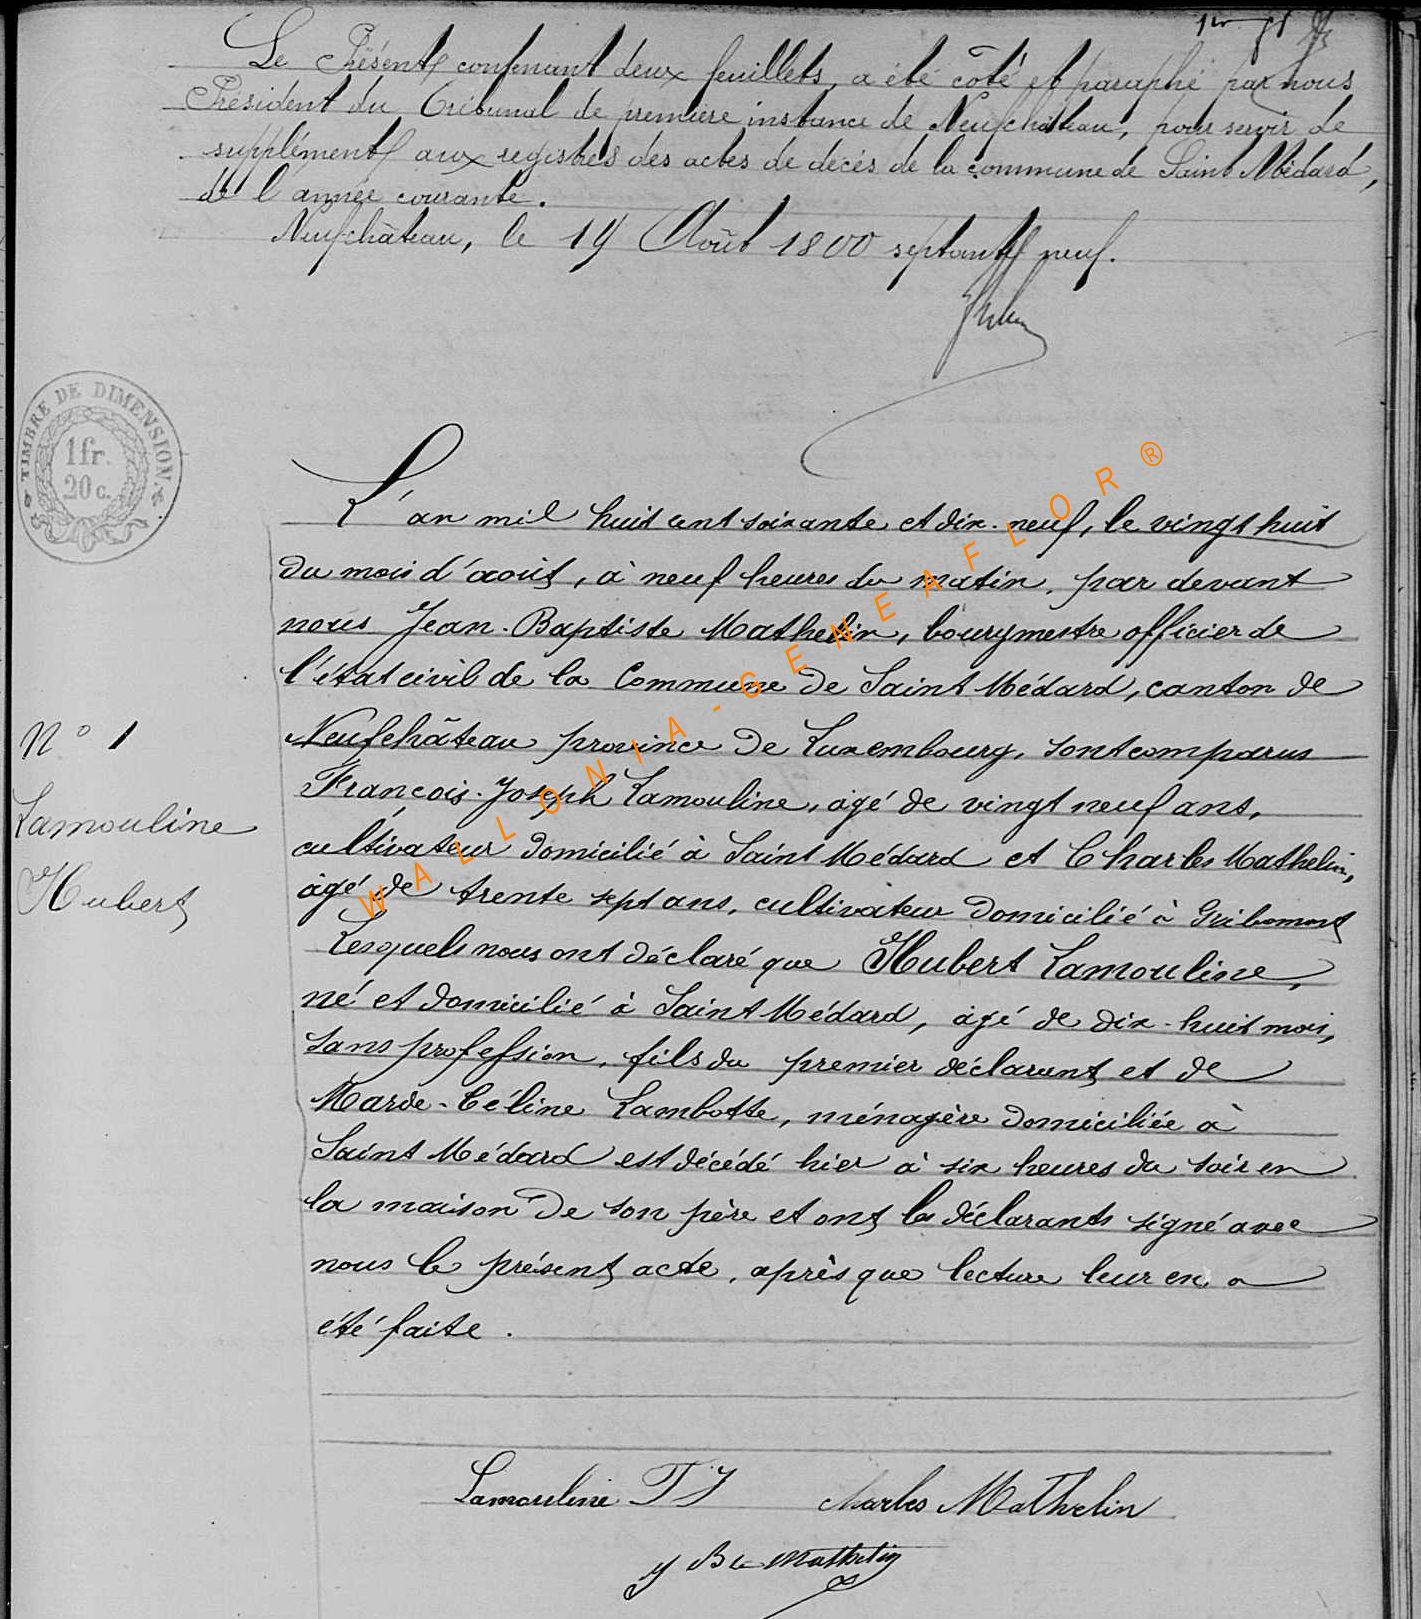 1er
Le Présent contenant deux feuillets, a été côté et paraphé par nous
Président du Tribunal de première instance de Neufchâteau, pour servir de
supplément aux registres des actes de décès de la commune de Saint Médard,
de l'année courante.
Neufchâteau, le 19 Août 1800 septante neuf.
TIMBRE DE DIMENSION
1 fr.
20 c.
L'an mil huit cent soixante et dix-neuf, le vingt huit
du mois d'août, à neuf heures du matin, par devant
nous Jean-Baptiste Mathelin, bourgmestre officier de
l'état civil de la Commune de Saint Médard, canton de
Neufchâteau province de Luxembourg, sont comparus
François-Joseph Lamouline, âgé de vingt neuf ans,
cultivateur domicilié à Saint Médard et Charles Mathelin,
âgé de trente sept ans, cultivateur domicilié à Gribomont
Lesquels nous ont déclaré que Hubert Lamouline,
né et domicilié à Saint Médard, âgé de dix-huit mois,
sans profession, fils du premier déclarant et de
Marie-Céline Lambotte, ménagère domiciliée à
Saint Médard est décédé hier à six heures du soir en
la maison de son père et ont les déclarants signé avec
nous le présent acte, après que lecture leur en a
été faite.
N° 1
Lamouline
Hubert
WALLONIA-GENEAFLOR®
Lamouline F J Charles Mathelin
J Bte Mathelin